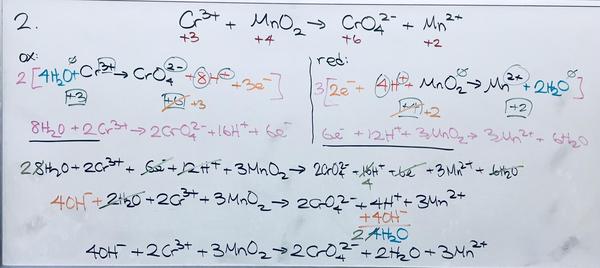 2. Cr³⁺ + MnO₂ → CrO₄²⁻ + Mn²⁺
+3 +4 +6 +2
ox:
2[4H₂O + Cr³⁺ → CrO₄²⁻ + 8H⁺ + 3e⁻]
+3 +6 +3
8H₂O + 2Cr³⁺ → 2CrO₄²⁻ + 16H⁺ + 6e⁻
red:
3[2e⁻ + 4H⁺ + MnO₂⁰ → Mn²⁺ + 2H₂O⁰]
+4 +2 +2
6e⁻ + 12H⁺ + 3MnO₂ → 3Mn²⁺ + 6H₂O
2 8H₂O + 2Cr³⁺ + 6e⁻ + 12H⁺ + 3MnO₂ → 2CrO₄²⁻ + 16H⁺ + 6e⁻ + 3Mn²⁺ + 6H₂O
4
4OH⁻ + 2H₂O + 2Cr³⁺ + 3MnO₂ → 2CrO₄²⁻ + 4H⁺ + 3Mn²⁺
+4OH⁻
2 4H₂O
4OH⁻ + 2Cr³⁺ + 3MnO₂ → 2CrO₄²⁻ + 2H₂O + 3Mn²⁺